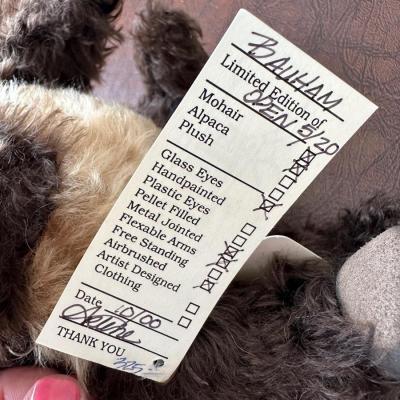 BAUHAM
Limited Edition of
OPEN 5/20
Mohair
Alpaca
Plush
Glass Eyes
Handpainted
Plastic Eyes
Pellet Filled
Metal Jointed
Flexable Arms
Free Standing
Airbrushed
Artist Designed
Clothing
Date 10/00
THANK YOU
385